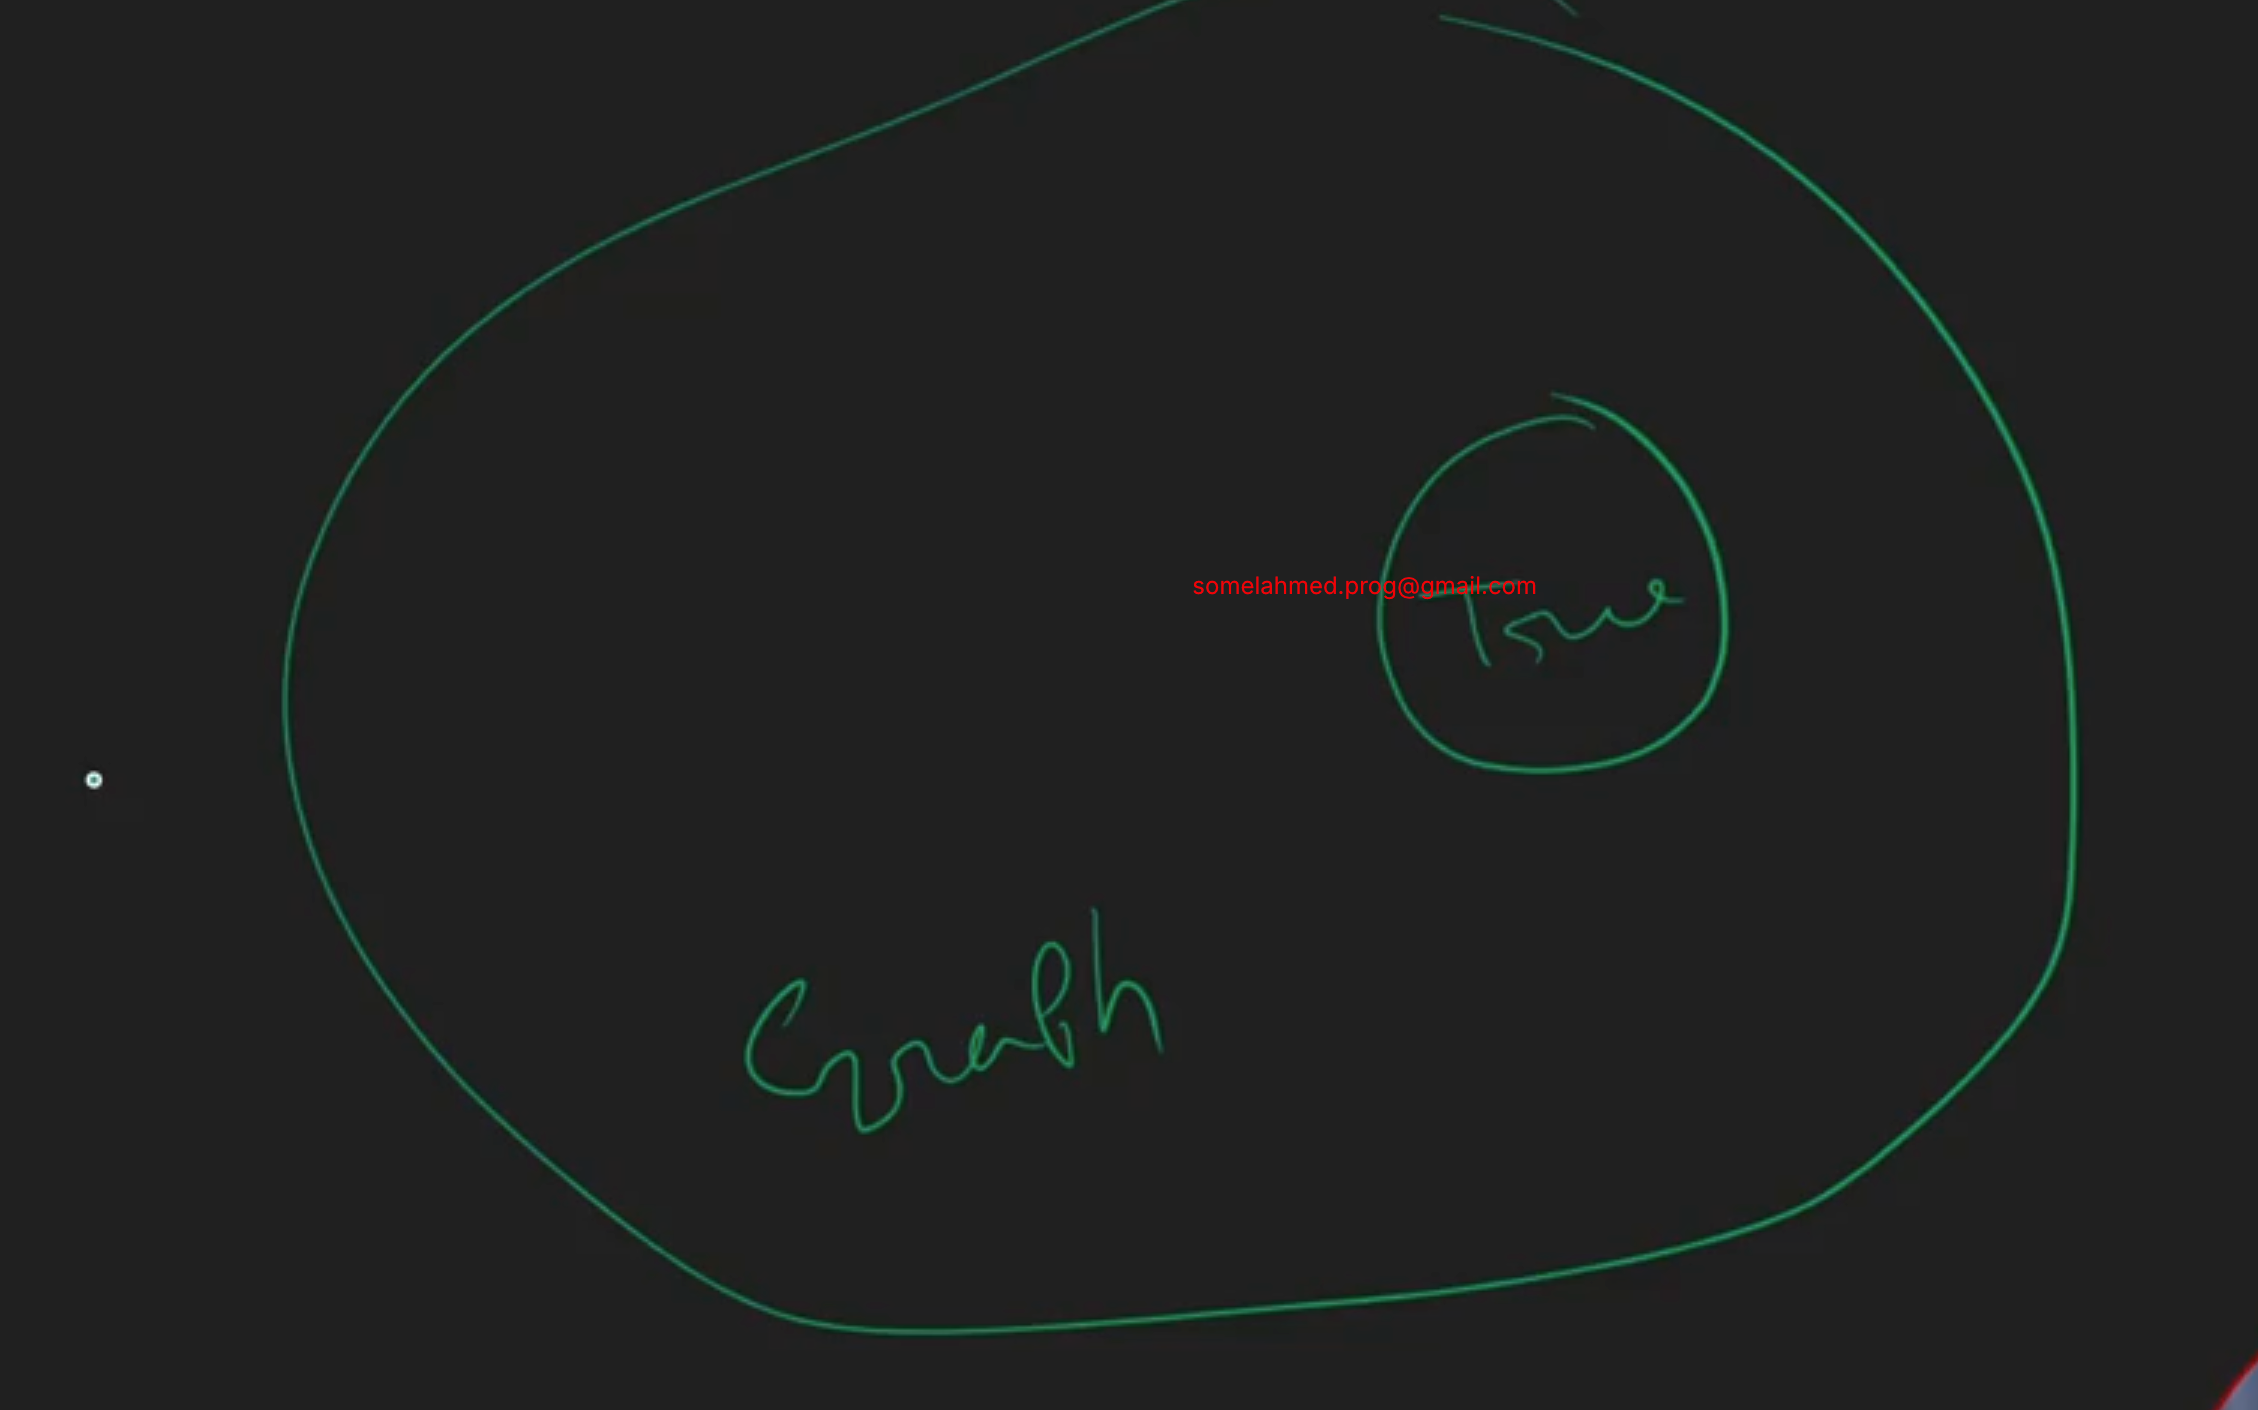 somelahmed.prog@gmail.com
Tree
Graph